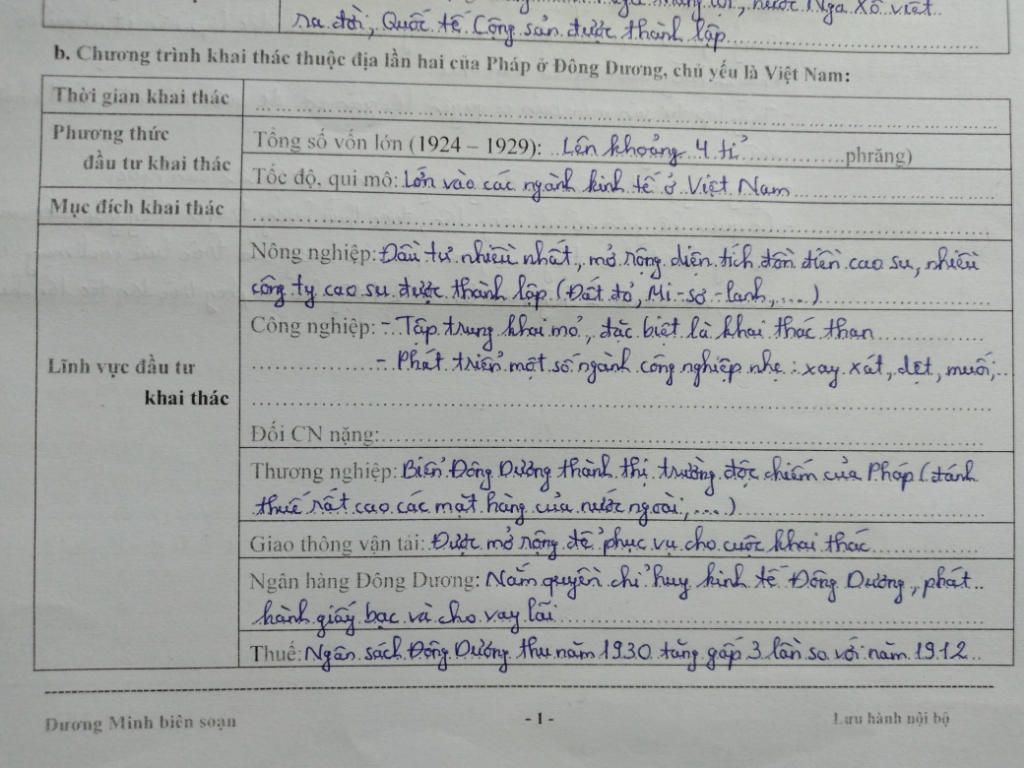 lợi, nước Nga Xô viết
ra đời, Quốc tế Cộng sản được thành lập
b. Chương trình khai thác thuộc địa lần hai của Pháp ở Đông Dương, chủ yếu là Việt Nam:
Thời gian khai thác
Phương thức
đầu tư khai thác
Tổng số vốn lớn (1924 – 1929): Lên khoảng 4 tỉ phrăng)
Tốc độ, qui mô: Lớn vào các ngành kinh tế ở Việt Nam
Mục đích khai thác
Lĩnh vực đầu tư
khai thác
Nông nghiệp: Đầu tư nhiều nhất, mở rộng diện tích đồn điền cao su, nhiều
công ty cao su được thành lập (Đất đỏ, Mi-sơ-lanh,....)
Công nghiệp: - Tập trung khai mỏ, đặc biệt là khai thác than
- Phát triển một số ngành công nghiệp nhẹ: xay xát, dệt, muối,..
Đối CN nặng:
Thương nghiệp: Biến Đông Dương thành thị trường độc chiếm của Pháp (đánh
thuế rất cao các mặt hàng của nước ngoài,....)
Giao thông vận tải: Được mở rộng để phục vụ cho cuộc khai thác
Ngân hàng Đông Dương: Nắm quyền chỉ huy kinh tế Đông Dương, phát
hành giấy bạc và cho vay lãi
Thuế: Ngân sách Đông Dương thu năm 1930 tăng gấp 3 lần so với năm 1912
Dương Minh biên soạn
- 1 -
Lưu hành nội bộ